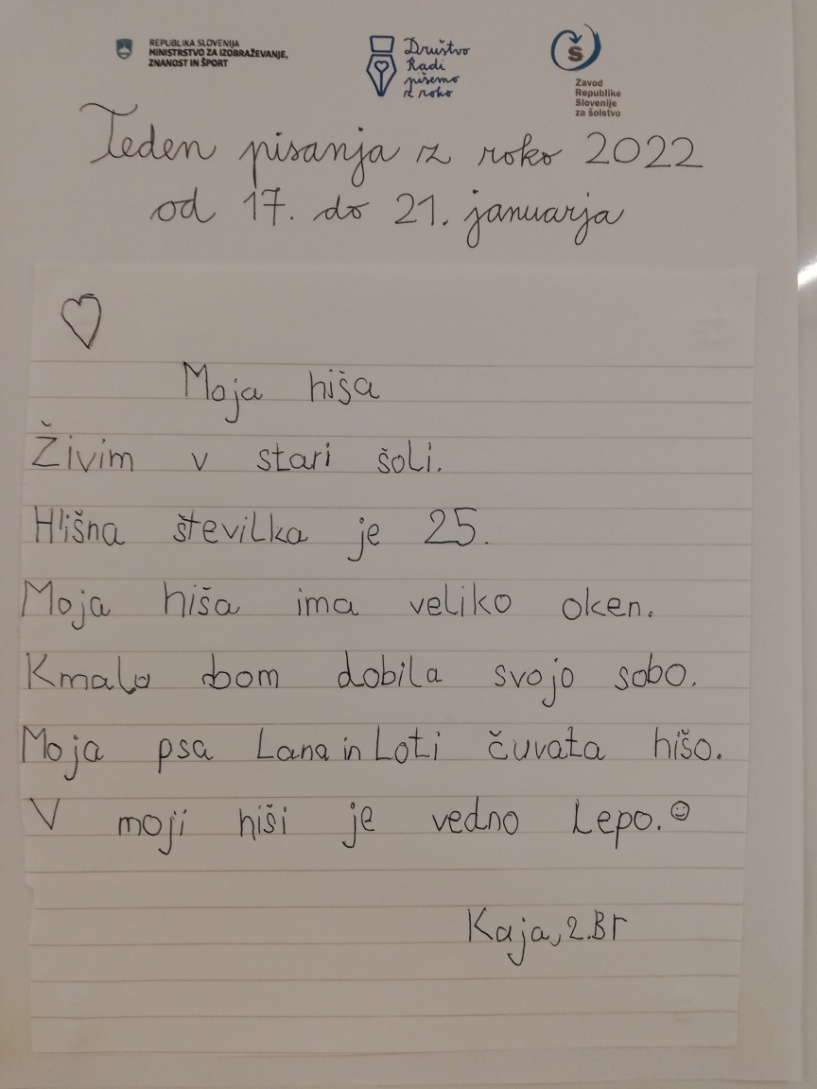 REPUBLIKA SLOVENIJA
MINISTRSTVO ZA IZOBRAŽEVANJE,
ZNANOST IN ŠPORT
Društvo
Radi
pišemo
z roko
Š
Zavod
Republike
Slovenije
za šolstvo
Teden pisanja z roko 2022
od 17. do 21. januarja
Moja hiša
Živim v stari šoli.
Hišna številka je 25.
Moja hiša ima veliko oken.
Kmalu bom dobila svojo sobo.
Moja psa Lana in Loti čuvata hišo.
V moji hiši je vedno lepo.☺
Kaja, 2.Br